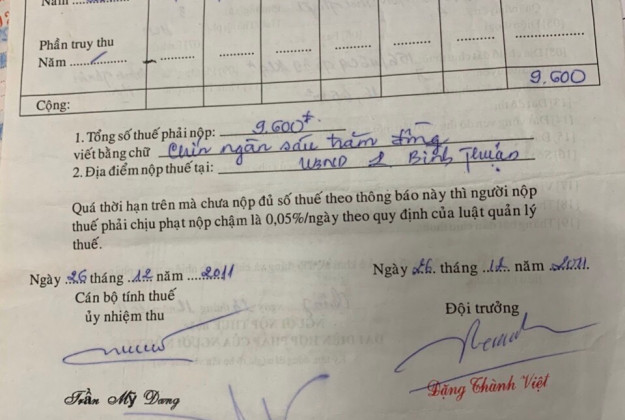 Năm ..........
Phần truy thu
Năm ..........
9.600
Cộng:
1. Tổng số thuế phải nộp: 9.600đ
viết bằng chữ Chín ngàn sáu trăm đồng
2. Địa điểm nộp thuế tại: UBND Bình Thuận
Quá thời hạn trên mà chưa nộp đủ số thuế theo thông báo này thì người nộp
thuế phải chịu phạt nộp chậm là 0,05%/ngày theo quy định của luật quản lý
thuế.
Ngày 26 tháng 12 năm 2011
Ngày 26 tháng 12 năm 2011.
Cán bộ tính thuế
ủy nhiệm thu
Đội trưởng
Trần Mỹ Dang
Đặng Thành Việt